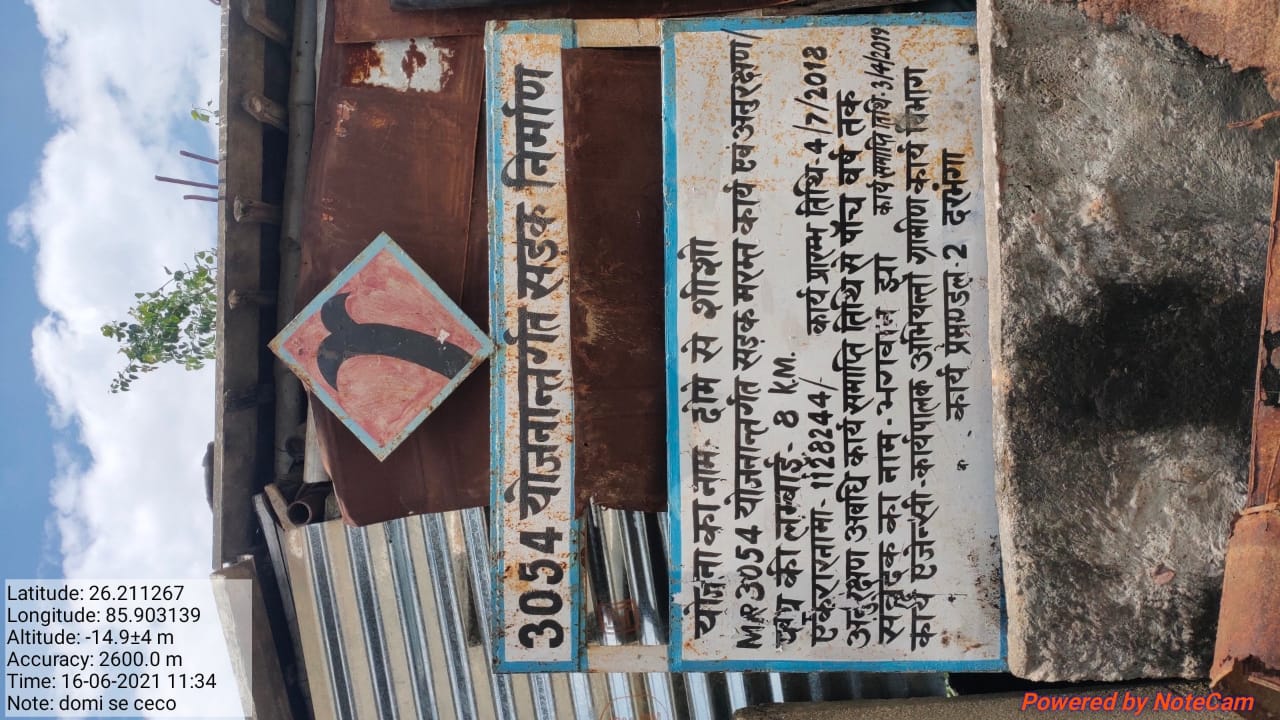 3054 योजनान्तर्गत सड़क निर्माण
योजना का नाम- दोमे से शीशो
MR 3054 योजनान्तर्गत सड़क मरम्त कार्य एवं अनुरक्षण/
पथ की लम्बाई- 8 K.M.
एकरारनामा- 1128244/ कार्य प्रारम्भ तिथि- 4/7/2018
अनुरक्षण अवधि कार्य समाप्ति तिथि से पाँच वर्ष तक
संवेदक का नाम- भगवान झा कार्य समाप्ति तिथि- 3/4/2019
कार्य एजेन्सी-कार्यपालक अभियन्ता ग्रामीण कार्य विभाग
कार्य प्रमण्डल-2 दरभंगा
Latitude: 26.211267
Longitude: 85.903139
Altitude: -14.9±4 m
Accuracy: 2600.0 m
Time: 16-06-2021 11:34
Note: domi se ceco
Powered by NoteCam